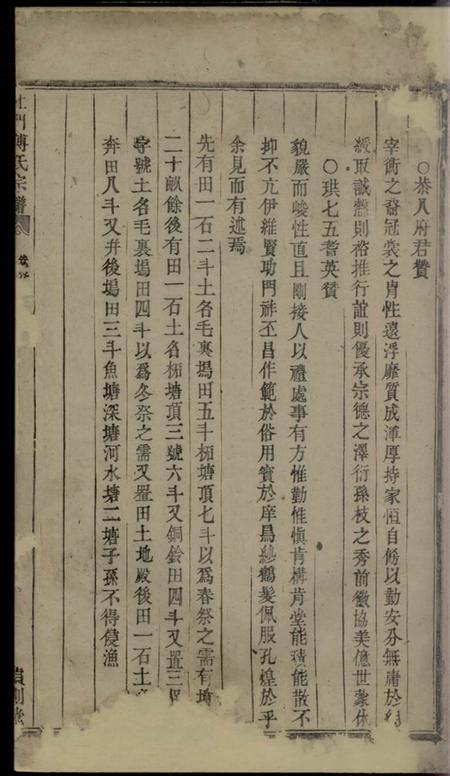 ○恭八府君贊
宰衡之裔冠裳之胄性遠浮靡質成渾厚持家恒自飭以勤安分無膚於
緩取誠慤則裕推行誼則優承宗德之澤衍孫枝之秀前徽協美億世蒙休
○珙七五耆英贊
貌嚴而峻性直且剛接人以禮處事有方惟勤惟愼肯構肯堂能積能散不
抑不亢伊維賢助門祚丕昌作範於俗用賓於庠鳥鶴髮佩服孔煌於乎
余見而有述焉
先有田一石二斗土名毛裏塢田五斗柘塘頂七斗以爲春祭之需有塘
二十畝餘後有田一石土名柘塘頂三號六斗又銅鈴田四斗又置三
字號土名毛裏塢田四斗以爲冬祭之需又置田土地殿後田一石土
奔田八斗又幷後塢田三斗魚塘深塘河水塘二塘子孫不得侵漁
門傅氏宗譜